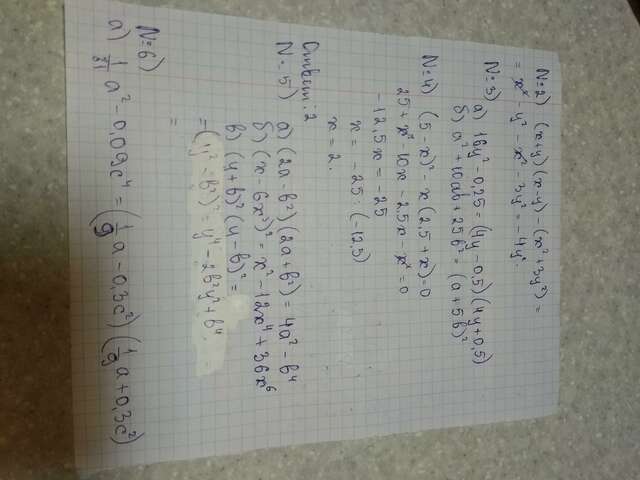 N=2) (x+y)(x-y) - (x²+3y²) =
= x² - y² - x² - 3y² = -4y².
N=3) а) 16y² - 0,25 = (4y - 0,5)(4y + 0,5)
б) a² + 10ab + 25b² = (a + 5b)²
N=4) (5-x)² - x(2,5+x) = 0
25 + x² - 10x - 2,5x - x² = 0
-12,5x = -25
x = -25 : (-12,5)
x = 2.
Ответ: 2
N=5) а) (2a - b²)(2a + b²) = 4a² - b⁴
б) (x - 6x³)² = x² - 12x⁴ + 36x⁶
в) (y+b)²(y-b)² =
= (y² - b²)² = y⁴ - 2b²y² + b⁴. =
=
N=6)
а) 1/81 a² - 0,09c⁴ = (1/9 a - 0,3c²)(1/9 a + 0,3c²)